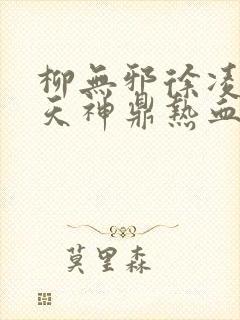 柳無邪徐凌
天神鼎熱血
莫里森